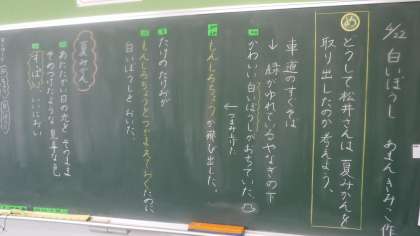 6/22 白いぼうし あまんきみこ作
め
どうして松井さんは、夏みかんを
取り出したのか考えよう。
車道のすぐそば
緑がゆれているやなぎの下
かわいい白いぼうしがおちていた
つまみ上げた
もんしろちょうが飛び出した。
たけのたけおが
もんしろちょう
白いぼうしをおいた。
夏みかん
あたたかい日の光をそのまま
そめつけたような、見事な色
すっぱい、いいにおい